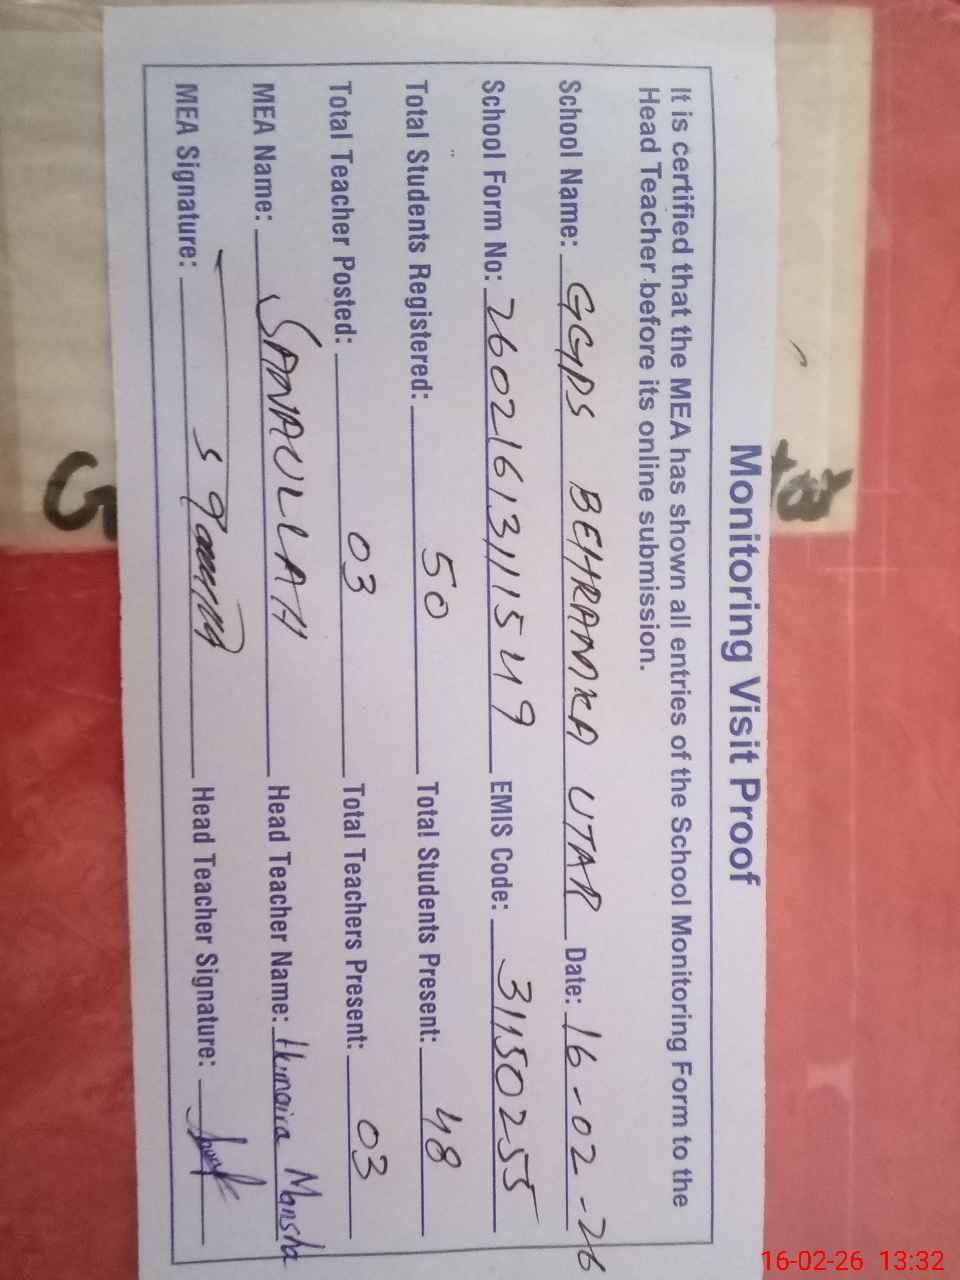 Monitoring Visit Proof
It is certified that the MEA has shown all entries of the School Monitoring Form to the
Head Teacher before its online submission.
School Name: GGPS BEHRAMKA UTAR Date: 16-02-26
School Form No: 26021613111549 EMIS Code: 31150255
Total Students Registered: 50 Total Students Present: 48
Total Teacher Posted: 03 Total Teachers Present: 03
MEA Name: SANAULLAH Head Teacher Name: Humaira Mansha
MEA Signature: Head Teacher Signature:
G
16-02-26 13:32